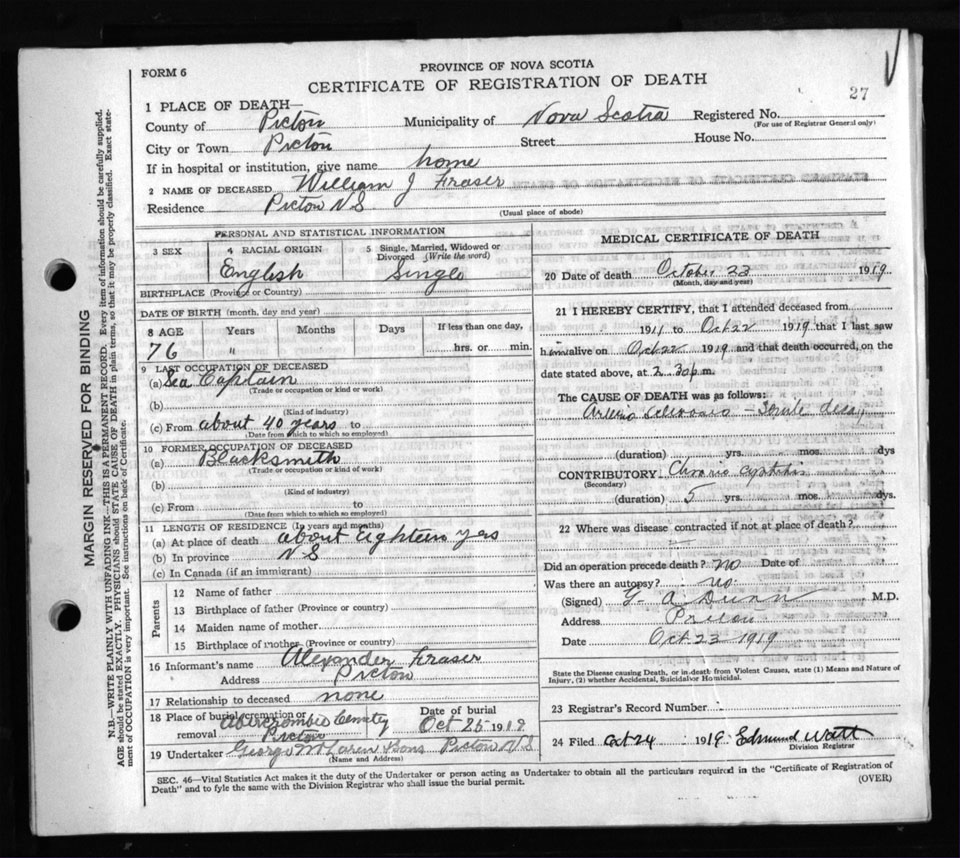 PROVINCE OF NOVA SCOTIA
FORM 6
CERTIFICATE OF REGISTRATION OF DEATH
27
1 PLACE OF DEATH—
County of Pictou Municipality of Nova Scotia Registered No.
(For use of Registrar General only)
City or Town Pictou Street House No.
If in hospital or institution, give name home
2 NAME OF DECEASED William J Fraser
Residence Pictou N S
(Usual place of abode)
PERSONAL AND STATISTICAL INFORMATION
3 SEX
4 RACIAL ORIGIN
English
5 Single, Married, Widowed or
Divorced (Write the word)
Single
BIRTHPLACE (Province or Country)
DATE OF BIRTH (month, day and year)
8 AGE Years Months Days If less than one day,
76 " hrs. or min.
9 LAST OCCUPATION OF DECEASED
(a) Sea Captain
(Trade or occupation or kind or work)
(b)
(Kind of industry)
(c) From about 40 years to
(Date from which to which so employed)
10 FORMER OCCUPATION OF DECEASED
(a) Blacksmith
(Trade or occupation or kind of work)
(b)
(Kind of industry)
(c) From to
(Date from which to which so employed)
11 LENGTH OF RESIDENCE (In years and months)
(a) At place of death about eighteen yrs
(b) In province N S
(c) In Canada (if an immigrant)
Parents
12 Name of father
13 Birthplace of father (Province or country)
14 Maiden name of mother
15 Birthplace of mother (Province or country)
16 Informant's name Alexander Fraser
Address Pictou
17 Relationship to deceased none
18 Place of burial, cremation or removal Abercrombie Cemetry Pictou
Date of burial
Oct 25 1919
19 Undertaker George McLaren Sons Pictou N S
(Name and Address)
MEDICAL CERTIFICATE OF DEATH
20 Date of death October 23 1919
(Month, day and year)
21 I HEREBY CERTIFY, that I attended deceased from
1911 to Oct 22 1919 that I last saw
him alive on Oct 22 1919 and that death occurred, on the
date stated above, at 2.30 p m.
The CAUSE OF DEATH was as follows:
Arterio Sclerosis — Senile decay
(duration) yrs. mos. dys
CONTRIBUTORY Chronic Cystitis
(Secondary)
(duration) 5 yrs. mos. dys.
22 Where was disease contracted if not at place of death?
Did an operation precede death? no Date of
Was there an autopsy? no
(Signed) G. A Dunn M.D.
Address Pictou
Date Oct. 23 1919
State the Disease causing Death, or in death from Violent Causes, state (1) Means and Nature of
Injury, (2) whether Accidental, Suicidal or Homicidal.
23 Registrar's Record Number
24 Filed Oct 24 1919 Edmund Watt
Division Registrar
SEC. 46—Vital Statistics Act makes it the duty of the Undertaker or person acting as Undertaker to obtain all the particulars required in the "Certificate of Registration of
Death" and to fyle the same with the Division Registrar who shall issue the burial permit.
(OVER)
MARGIN RESERVED FOR BINDING
N.B.—WRITE PLAINLY WITH UNFADING INK—THIS IS A PERMANENT RECORD. Every item of information should be carefully supplied.
AGE should be stated EXACTLY. PHYSICIANS should STATE CAUSE OF DEATH in plain terms, so that it may be properly classified. Exact state-
ment of OCCUPATION is very important. See instructions on back of Certificate.